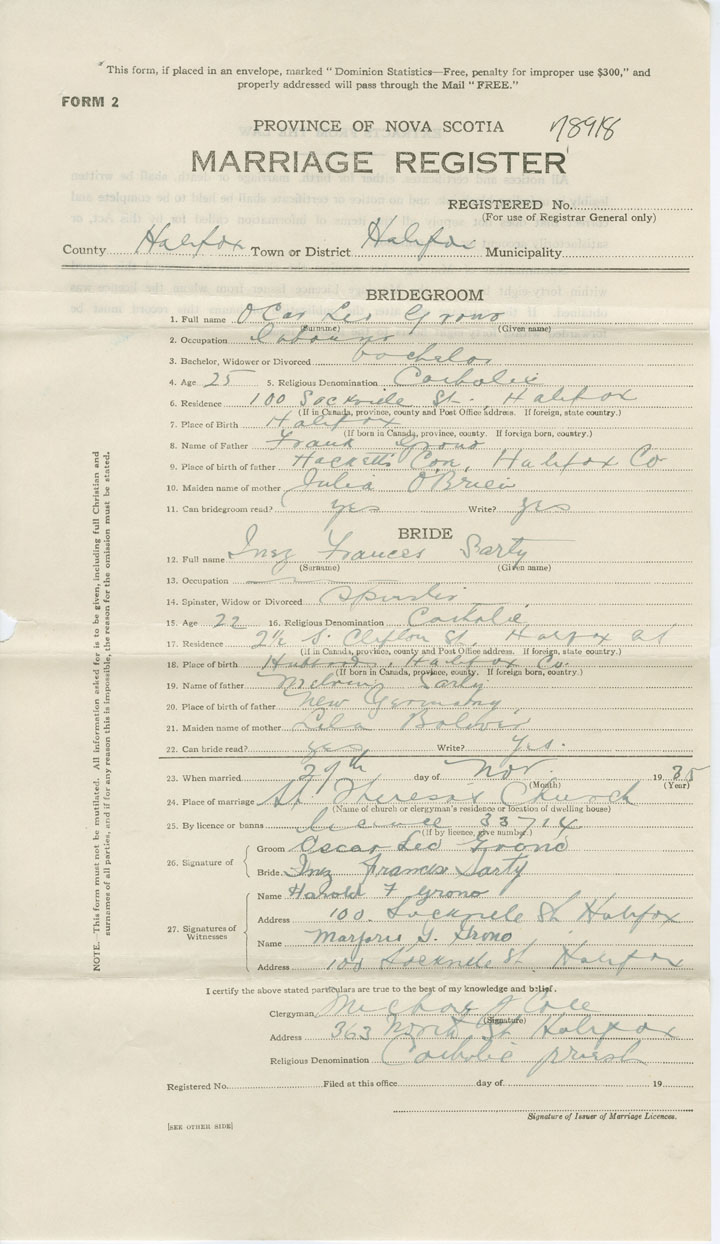 "This form, if placed in an envelope, marked "Dominion Statistics—Free, penalty for improper use $300," and
properly addressed will pass through the Mail "FREE."
FORM 2
PROVINCE OF NOVA SCOTIA
MARRIAGE REGISTER
REGISTERED No.
(For use of Registrar General only)
County Halifax Town or District Halifax Municipality
BRIDEGROOM
1. Full name Leo Grono
(Surname) (Given name)
2. Occupation labourer
3. Bachelor, Widower or Divorced bachelor
4. Age 25 5. Religious Denomination Catholic
6. Residence 100 St. Halifax
(If in Canada, province, county and Post Office address. If foreign, state country.)
7. Place of Birth Halifax
(If born in Canada, province, county. If foreign born, country.)
8. Name of Father Frank Grono
9. Place of birth of father Hacketts Cove, Halifax Co
10. Maiden name of mother Julia O'Brien
11. Can bridegroom read? yes Write? yes
BRIDE
12. Full name Inez Frances Sarty
(Surname) (Given name)
13. Occupation
14. Spinster, Widow or Divorced Spinster
15. Age 22 16. Religious Denomination Catholic
17. Residence S. Clifton St., Halifax
(If in Canada, province, county and Post Office address. If foreign, state country.)
18. Place of birth Hubbards, Halifax Co.
(If born in Canada, province, county. If foreign born, country.)
19. Name of father Sarty
20. Place of birth of father New Germany
21. Maiden name of mother
22. Can bride read? yes Write? Yes.
23. When married day of Nov. 1935
(Month) (Year)
24. Place of marriage St. Theresa's Church
(Name of church or clergyman's residence or location of dwelling house)
25. By licence or banns licence 33714
(If by licence, give number.)
26. Signature of
Groom Oscar Leo Grono
Bride Inez Frances Sarty
27. Signatures of Witnesses
Name Harold F Grono
Address 100 St Halifax
Name Marjorie Grono
Address 100 St Halifax
I certify the above stated particulars are true to the best of my knowledge and belief.
Clergyman
(Signature)
Address 363 North St Halifax
Religious Denomination Catholic priest
Registered No. Filed at this office day of 19
Signature of Issuer of Marriage Licences.
[SEE OTHER SIDE]
NOTE.—This form must not be mutilated. All information asked for is to be given, including full Christian and
surnames of all parties, and if for any reason this is impossible, the reason for the omission must be stated.